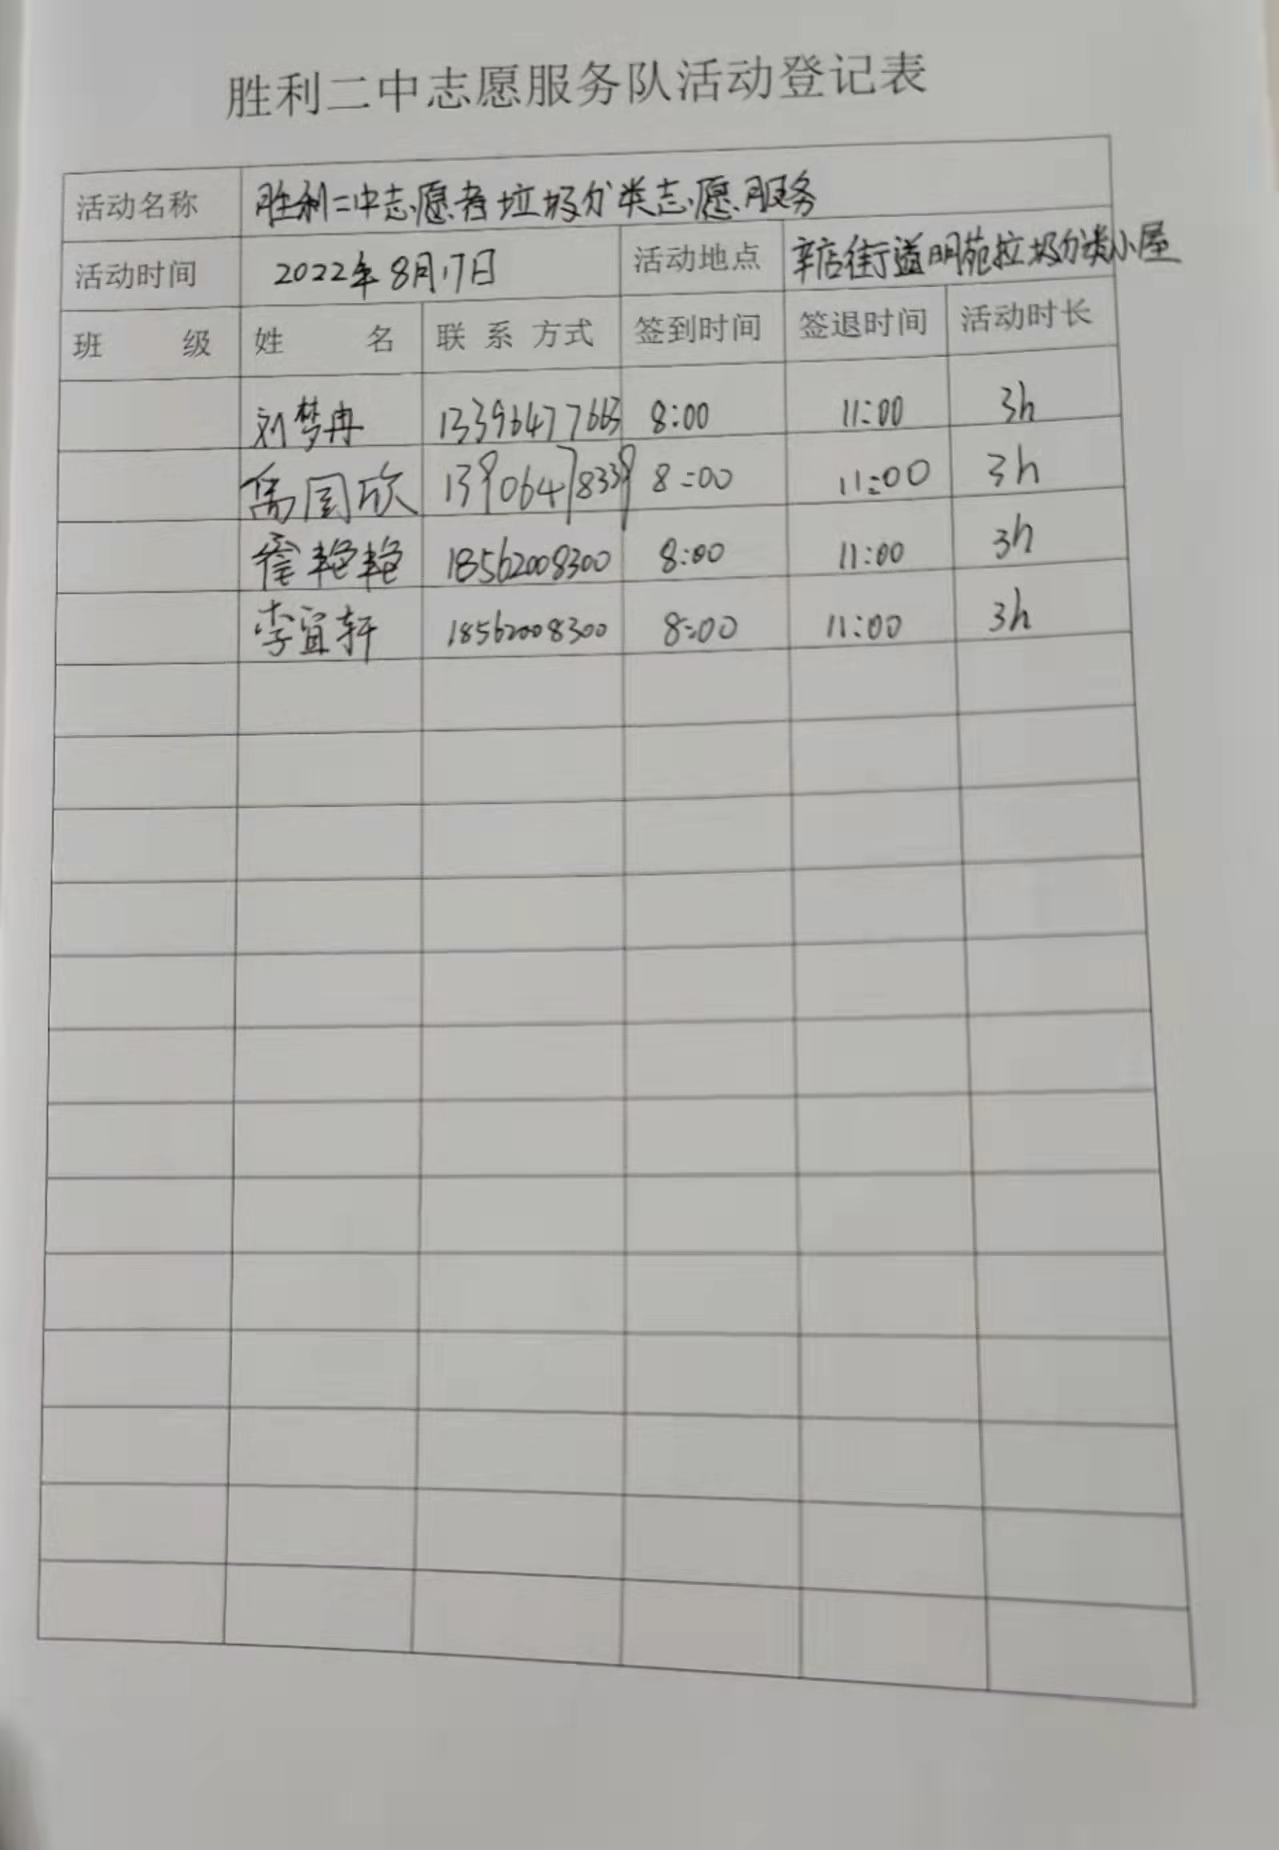 胜利二中志愿服务队活动登记表
活动名称 胜利二中志愿者垃圾分类志愿服务
活动时间 2022年8月17日 活动地点 辛店街道明苑垃圾分类小屋
班 级 姓 名 联系方式 签到时间 签退时间 活动时长
刘梦冉 13396477663 8:00 11:00 3h
国欣 13906478339 8:00 11:00 3h
艳艳 18562008300 8:00 11:00 3h
李宜轩 18562008300 8:00 11:00 3h